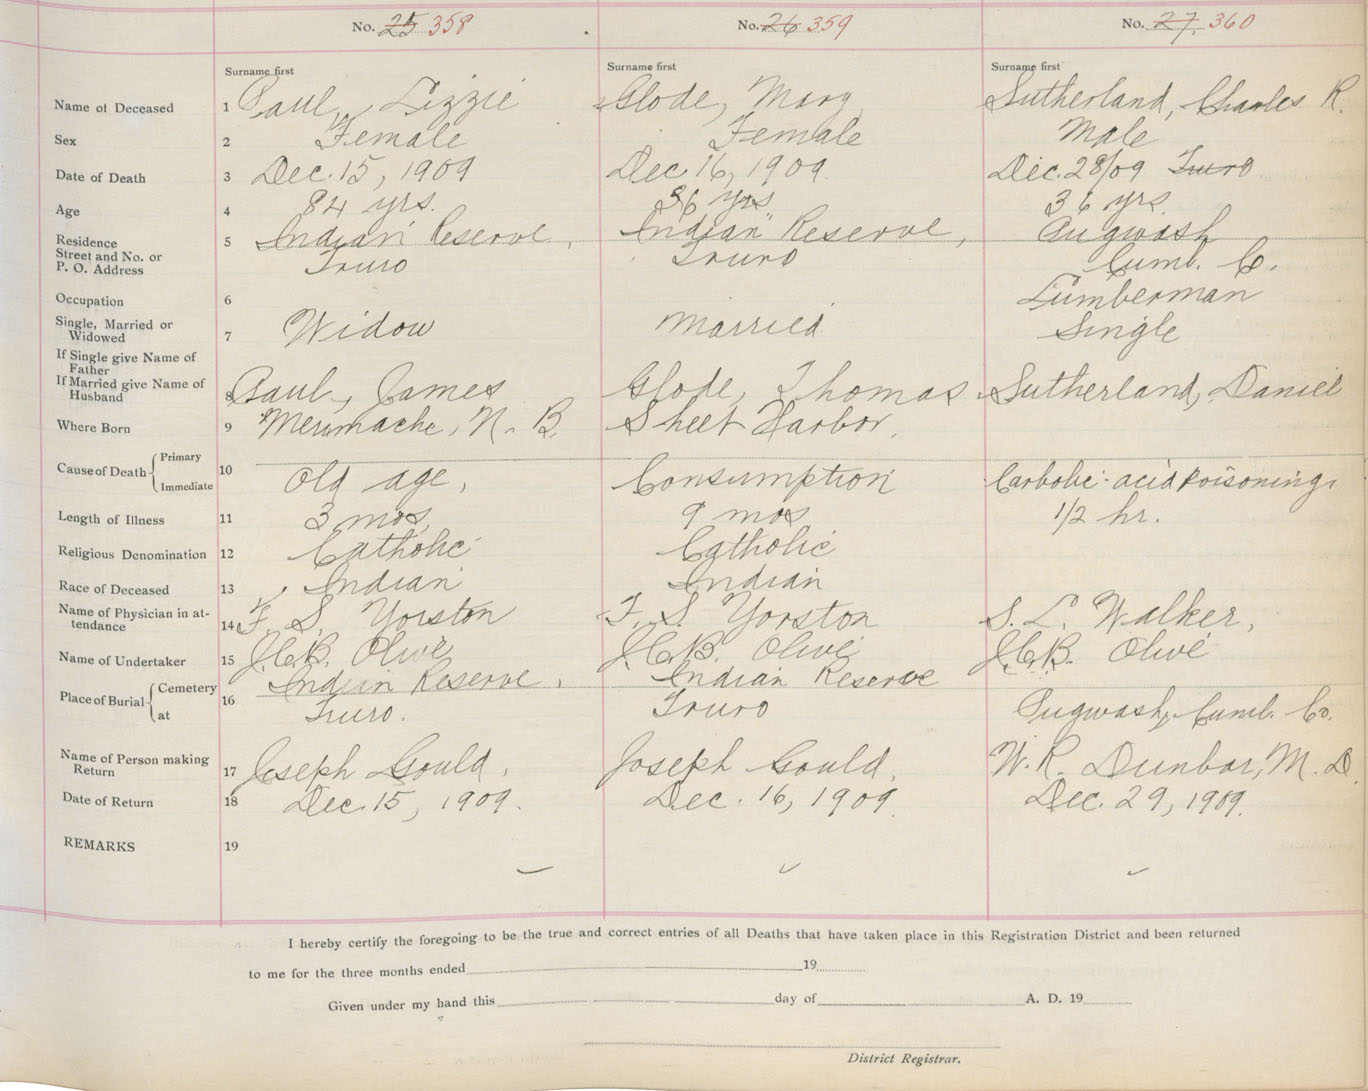 No. 25 358 No. 26 359 No. 27. 360
Surname first Surname first Surname first
Name of Deceased 1 Paul, Lizzie Glode, Mary Sutherland, Charles R.
Sex 2 Female Female Male
Date of Death 3 Dec. 15, 1909 Dec. 16, 1909. Dec. 28/09 Truro
Age 4 84 yrs. 36 yrs 36 yrs.
Residence 5 Indian Reserve, Indian Reserve, Pugwash
Street and No. or
P. O. Address Truro Truro Cumb. C.
Occupation 6 Lumberman
Single, Married or
Widowed 7 Widow Married Single
If Single give Name of
Father
If Married give Name of
Husband 8 Paul, James Glode, Thomas Sutherland, Daniel
Where Born 9 Merimache, N. B. Sheet Harbor,
Cause of Death { Primary
Immediate 10 Old age, Consumption Carbolic acid poisoning,
Length of Illness 11 3 mos, 9 mos 1/2 hr.
Religious Denomination 12 Catholic Catholic
Race of Deceased 13 Indian Indian
Name of Physician in at-
tendance 14 F. S. Yorston F. S. Yorston S. L. Walker,
Name of Undertaker 15 J.C.B. Olive J.C.B. Olive J.C.B. Olive
Place of Burial { Cemetery 16 Indian Reserve, Indian Reserve
at Truro. Truro Pugwash, Cumb. Co.
Name of Person making
Return 17 Joseph Gould, Joseph Gould, W. R. Dunbar, M. D.
Date of Return 18 Dec. 15, 1909. Dec. 16, 1909 Dec. 29, 1909.
REMARKS 19
I hereby certify the foregoing to be the true and correct entries of all Deaths that have taken place in this Registration District and been returned
to me for the three months ended 19
Given under my hand this day of A. D. 19
District Registrar.